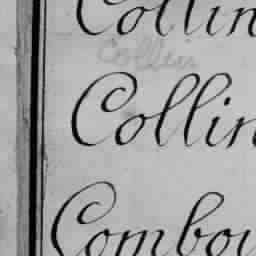 Collin
Collin
Collin
Combou